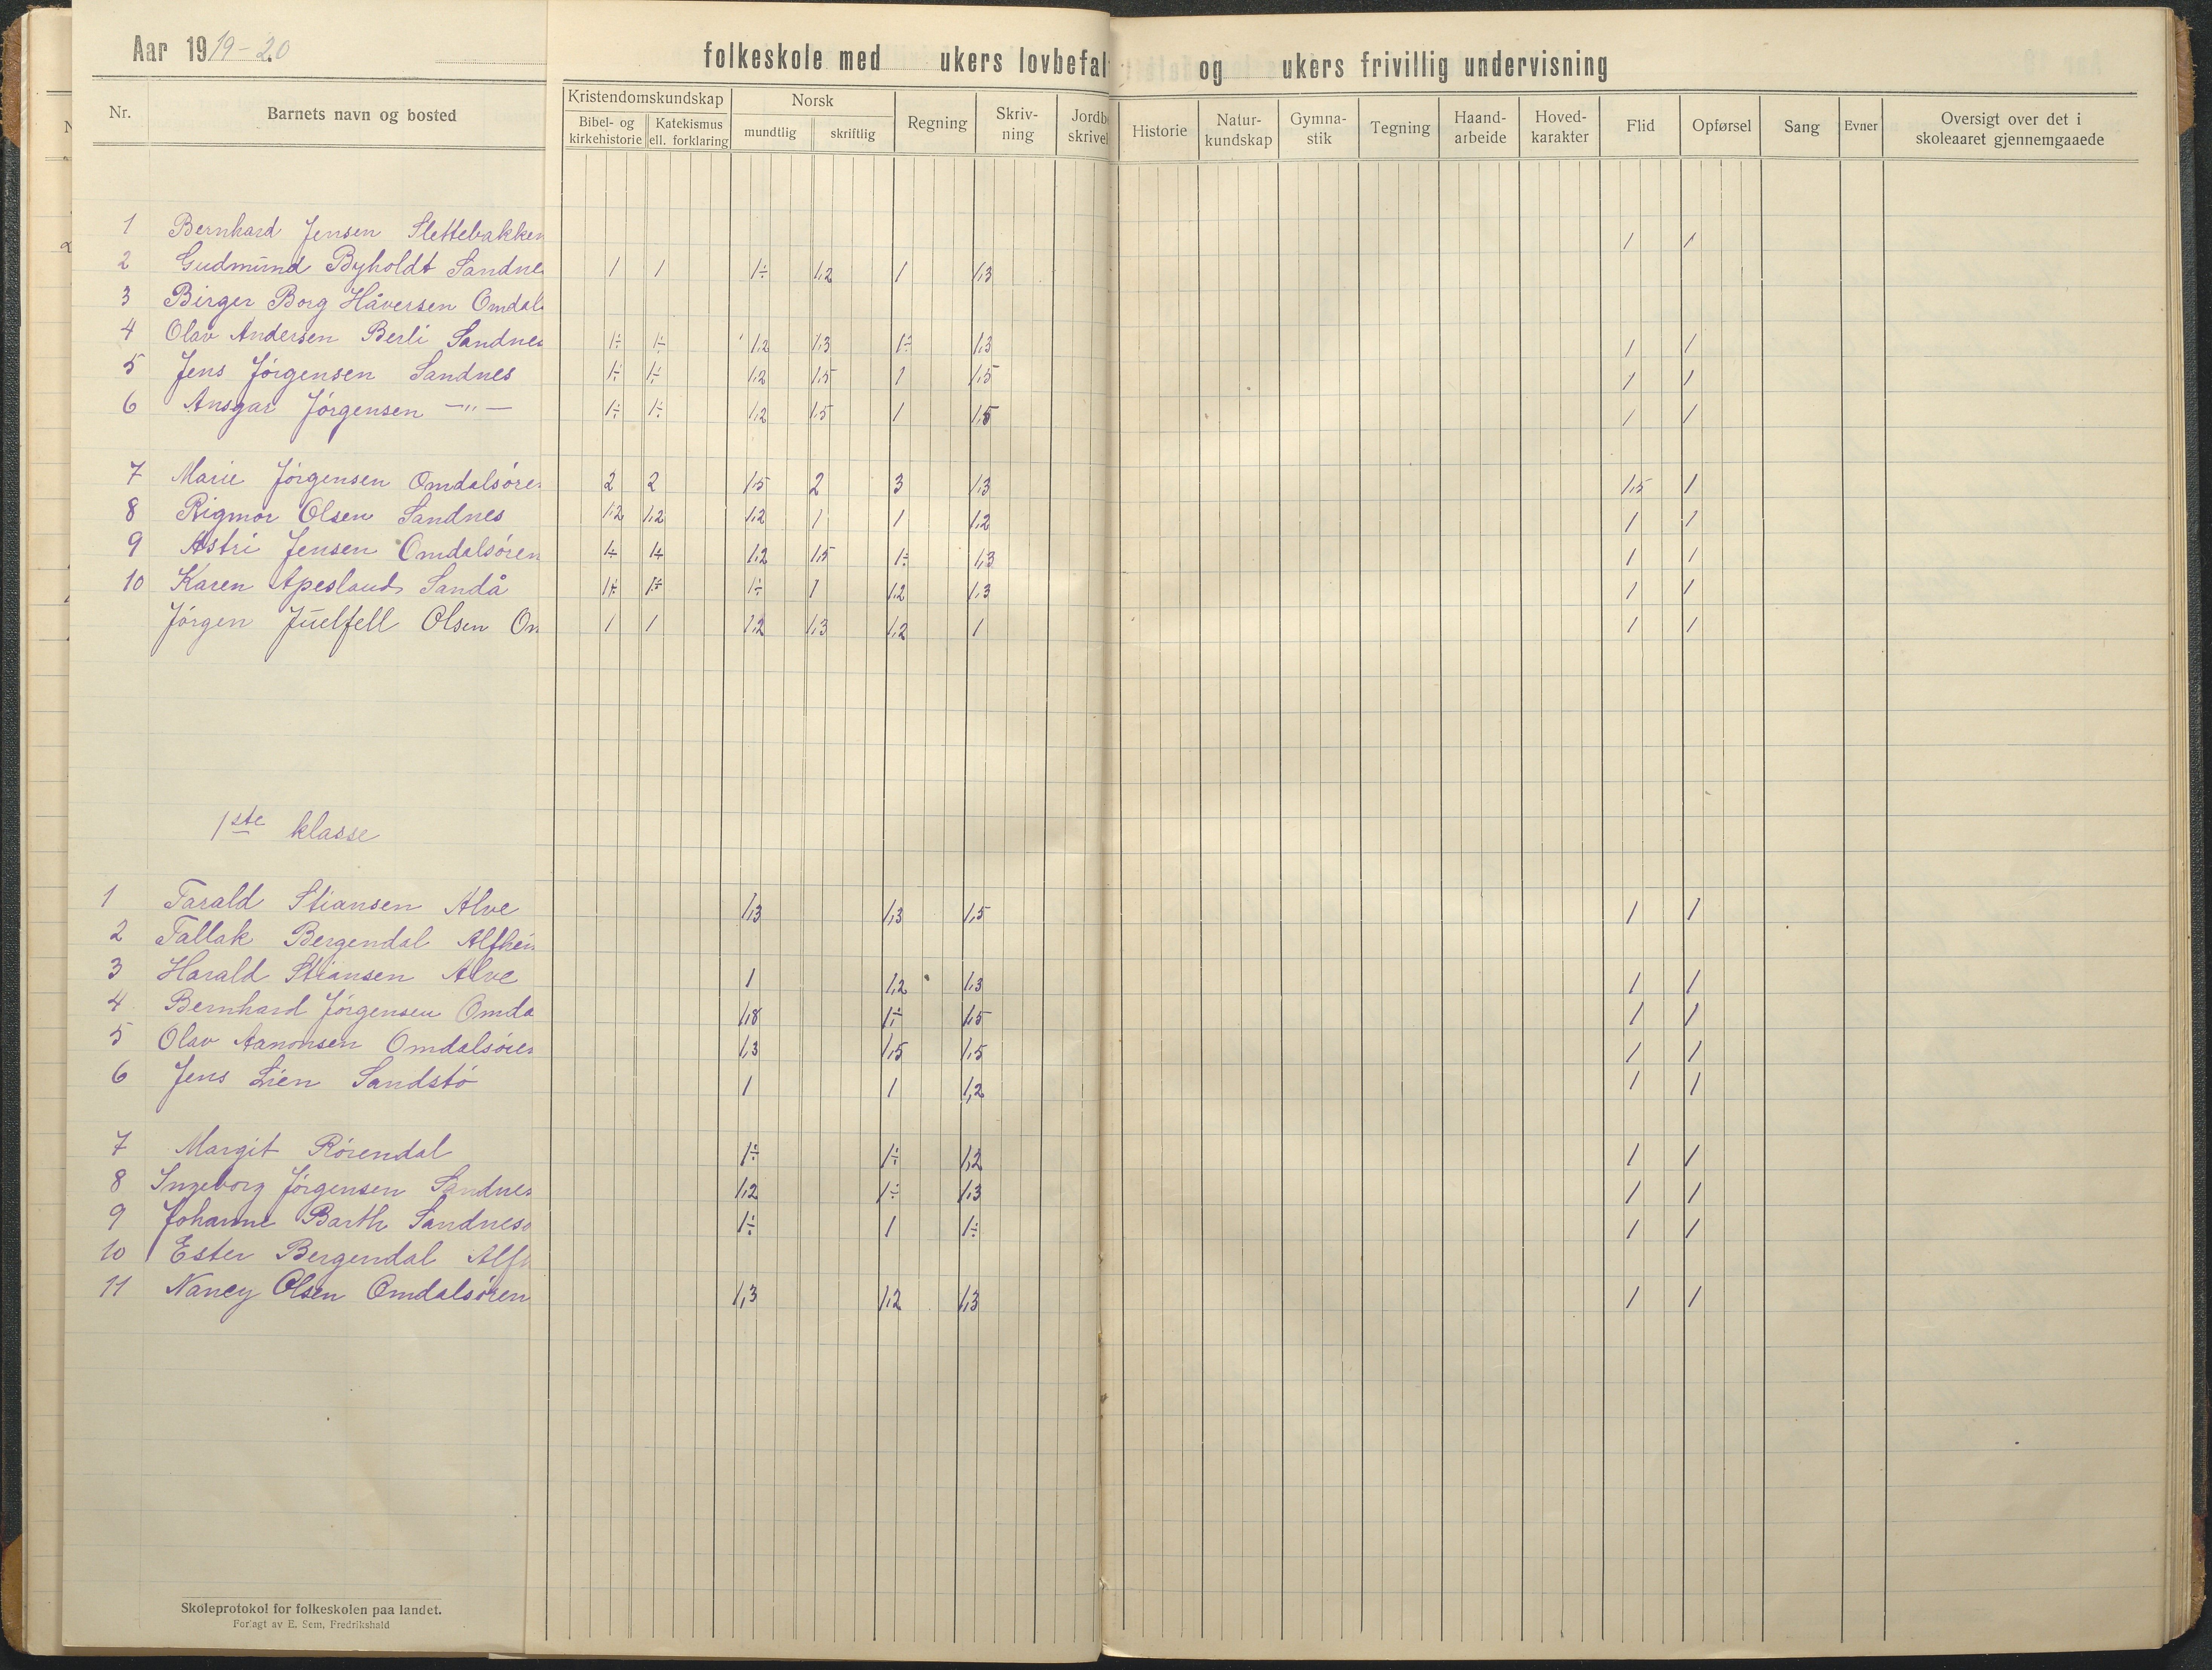 Aar 1919-20
folkeskole med ukers lovbefal og ukers frivillig undervisning
Nr. Barnets navn og bosted Kristendomskundskap Norsk Regning Skriv-ning Jordb skrivel Historie Natur-kundskap Gymna-stik Tegning Haand-arbeide Hoved-karakter Flid Opførsel Sang Evner Oversigt over det i skoleaaret gjennemgaaede
Bibel- og kirkehistorie Katekismus ell. forklaring mundtlig skriftlig
1 Bernhard Jensen Slettebakken 1 1
2 Gudmund Byholdt Sandnes 1 1 1÷ 1,2 1 1,3
3 Birger Borg Håversen Omdals
4 Olav Andersen Berli Sandnes 1÷ 1÷ 1,2 1,3 1÷ 1,3 1 1
5 Jens Jörgensen Sandnes 1÷ 1÷ 1,2 1,5 1 1,5 1 1
6 Ansgar Jörgensen -"- 1÷ 1÷ 1,2 1,5 1 1,5 1 1
7 Marie Jörgensen Omdalsören 2 2 1,5 2 3 1,3 1,5 1
8 Rigmor Olsen Sandnes 1,2 1,2 1,2 1 1 1,2 1 1
9 Astri Jensen Omdalsören 1÷ 1÷ 1,2 1,5 1÷ 1,3 1 1
10 Karen Apesland Sandå 1÷ 1÷ 1÷ 1 1,2 1,3 1 1
Jörgen Juelfell Olsen Om 1 1 1,2 1,3 1,2 1 1 1
1ste klasse
1 Tarald Stiansen Alve 1,3 1,3 1,5 1 1
2 Tallak Bergendal Alfheim
3 Harald Stiansen Alve 1 1,2 1,3 1 1
4 Bernhard Jörgensen Omda 1,8 1÷ 1,5 1 1
5 Olav Aanonsen Omdalsören 1,3 1,5 1,5 1 1
6 Jens Lien Sandstö 1 1 1,2 1 1
7 Margit Rörendal 1÷ 1÷ 1,2 1 1
8 Ingeborg Jörgensen Sandnes 1,2 1÷ 1,3 1 1
9 Johanne Barth Sandnes 1÷ 1 1÷ 1 1
10 Ester Bergendal Alfh
11 Nancy Olsen Omdalsören 1,3 1,2 1,3 1 1
Skoleprotokol for folkeskolen paa landet.
Forlagt av E. Sem, Fredrikshald